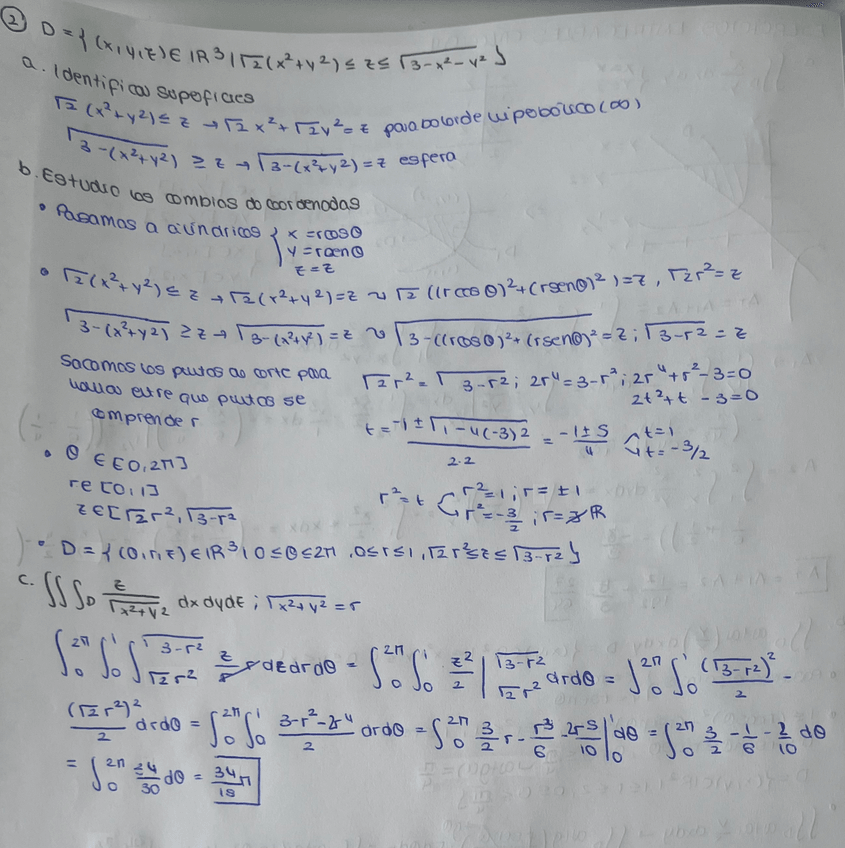 ② D = { (x,y,z) ∈ IR³ | √2(x²+y²) ≤ z ≤ √(3-x²-y²) }
a. Identificar superficies
√2 (x²+y²) ≤ z → √2 x² + √2 y² = z
√(3-(x²+y²)) ≥ z → √(3-(x²+y²)) = z esfera
b. Estudio los cambios de coordenadas
• Pasamos a cilíndricas { x = rcosθ
y = rsenθ
z = z
• √2(x²+y²) ≤ z → √2(x²+y²) = z ~ √2 ((rcosθ)²+(rsenθ)²) = z, √2r² = z
√(3-(x²+y²)) ≥ z → √(3-(x²+y²)) = z ~ √(3-((rcosθ)²+(rsenθ)²) = z; √(3-r²) = z
Sacamos los puntos de corte para
hallar entre que puntos se
comprende r
√2r² = √(3-r²); 2r⁴ = 3-r²; 2r⁴+r²-3=0
2t²+t-3=0
t = (-1 ± √(1-4(-3)2))/(2·2) = (-1±5)/4 < t=1
t=-3/2
r² = t < r²=1; r=±1
r²=-3/2; r=∄ IR
• θ ∈ [0,2π]
r ∈ [0,1]
z ∈ [√2r², √(3-r²)
• D = { (θ,r,z) ∈ IR³ | 0≤θ≤2π, 0≤r≤1, √2r²≤z≤√(3-r²) }
c. ∫∫∫_D z/√(x²+y²) dxdydz; √(x²+y²) = r
∫₀^2π ∫₀^1 ∫_√2r²^√(3-r²) z/r r dzdrdθ = ∫₀^2π ∫₀^1 z²/2 |_√2r²^√(3-r²) drdθ = ∫₀^2π ∫₀^1 (√(3-r²))²/2 -
(√2r²)²/2 drdθ = ∫₀^2π ∫₀^1 (3-r²-2r⁴)/2 drdθ = ∫₀^2π 3/2 r - r³/6 - 2r⁵/10 |₀^1 dθ = ∫₀^2π 3/2 - 1/6 - 2/10 dθ
= ∫₀^2π 34/30 dθ = 34π/15